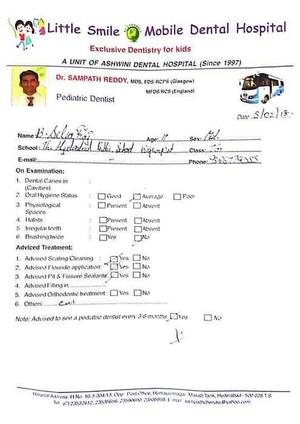 Little Smile Mobile Dental Hospital
Exclusive Dentistry for kids
A UNIT OF ASHWINI DENTAL HOSPITAL (Since 1997)
Dr. SAMPATH REDDY, MDS, FDS RCPS (Glasgow)
MFDS RCS (England)
Pediatric Dentist
Date: 5/02/18
Name: Age: 11 Sex:
School: The Hyderabad Public School Begumpet Class:
E-mail: Phone:
On Examination:
1. Dental Caries in :
(Cavities)
2. Oral Hygiene Status : Good Average Poor
3. Physiological : Present Absent
Spaces
4. Habits : Present Absent
5. Irregular teeth : Present Absent
6. Brushing twice : Yes No
Adviced Treatment:
1. Advised Scaling Cleaning : Yes No
2. Advised Flouride application: Yes No
3. Advised Pit & Fissure Sealants: Yes No
4. Advised Filling in
5. Advised Orthodontic treatment : Yes No
6. Others:
Note: Advised to see a pediatric dentist every 3-6 months Yes No
Hospital Address: H.No. 10-3-304/13, Opp. Post Office, Humayunnagar, Masab Tank, Hyderabad - 500 028 T.S.